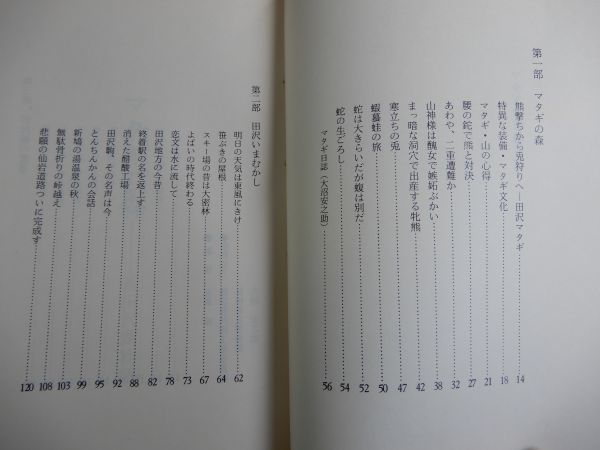 第一部　マタギの森
熊撃ちから兎狩りへ―田沢マタギ 14
特異な装備・マタギ文化 18
マタギ・山の心得 21
腰の鉈で熊と対決 27
あわや、二重遭難か 32
山神様は醜女で嫉妬ぶかい 38
まっ暗な洞穴で出産する牝熊 42
寒立ちの兎 47
蝦蟇蛙の旅 50
蛇は大きらいだが蝮は別だ 52
蛇の生ごろし 54
マタギ日誌（大沼安之助） 56
第二部　田沢いまむかし
明日の天気は東風にきけ 62
笹ぶきの屋根 64
スキー場の昔は大密林 67
よばいの時代終わる 73
恋文は水に流して 78
田沢地方の今昔 82
終着駅の名を返上す 88
消えた醋酸工場 92
田沢駒、その名声は今 95
とんちんかんの会話 99
新鳩の湯温泉の秋 103
無駄骨折りの峠越え 108
悲願の仙岩道路ついに完成す 120